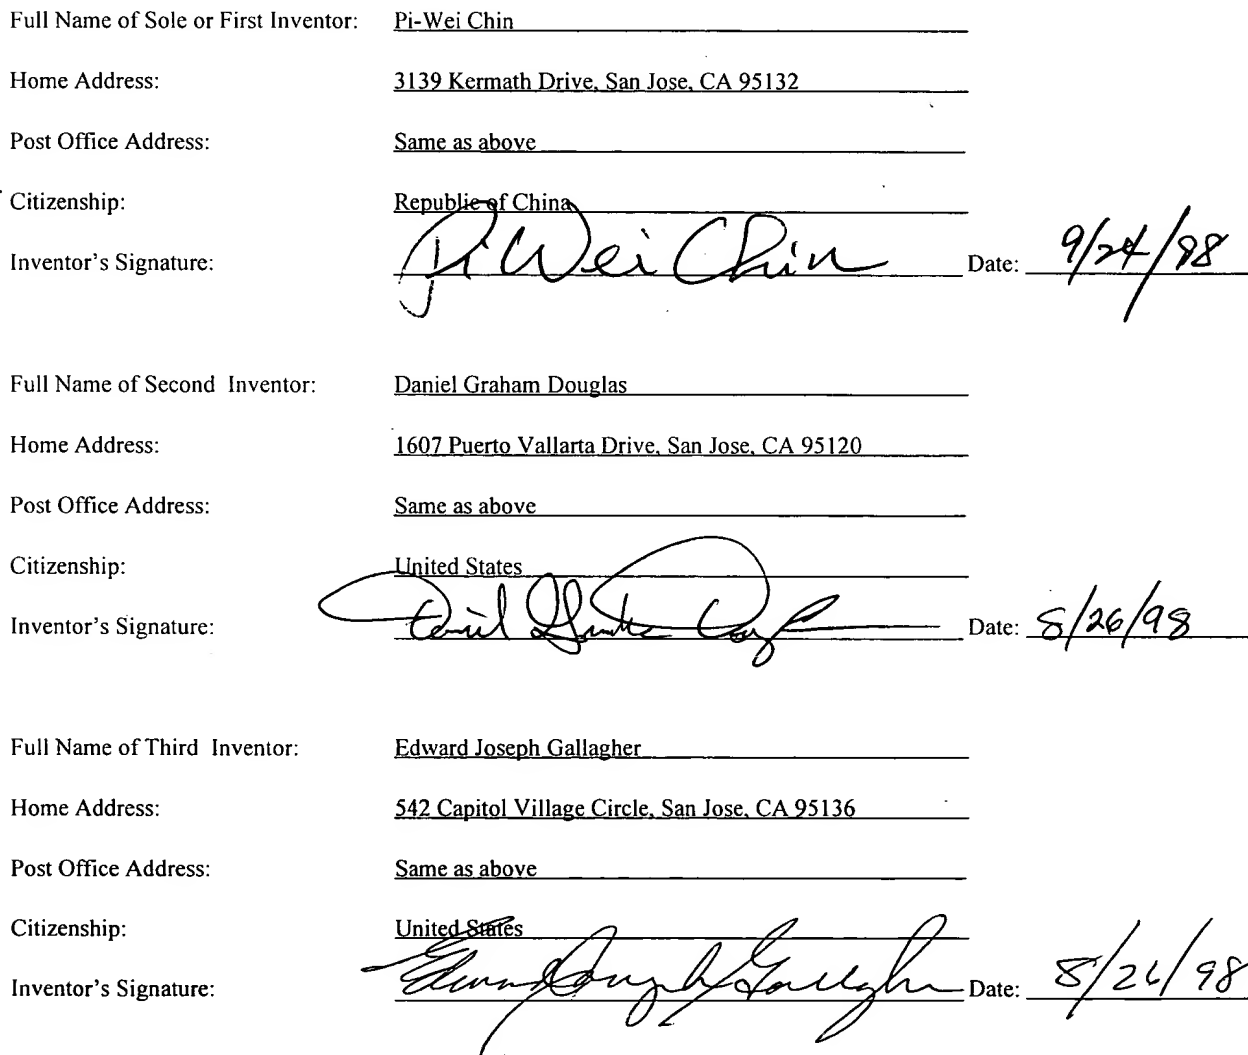 Full Name of Sole or First Inventor: Pi-Wei Chin
Home Address: 3139 Kermath Drive, San Jose, CA 95132
Post Office Address: Same as above
Citizenship: Republic of China
Inventor's Signature: Pi Wei Chin Date: 9/24/98
Full Name of Second Inventor: Daniel Graham Douglas
Home Address: 1607 Puerto Vallarta Drive, San Jose, CA 95120
Post Office Address: Same as above
Citizenship: United States
Inventor's Signature: Daniel Graham Douglas Date: 8/26/98
Full Name of Third Inventor: Edward Joseph Gallagher
Home Address: 542 Capitol Village Circle, San Jose, CA 95136
Post Office Address: Same as above
Citizenship: United States
Inventor's Signature: Edward Joseph Gallagher Date: 8/26/98